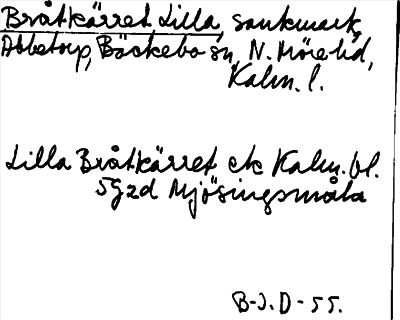 Bråtkärret Lilla, sankmark,
Abbetorp, Bäckebo sn, N. Möre hd,
Kalm. l.
Lilla Bråtkärret ek Kalm. bl.
5G2d Mjösingsmåla
B-J.D-55.